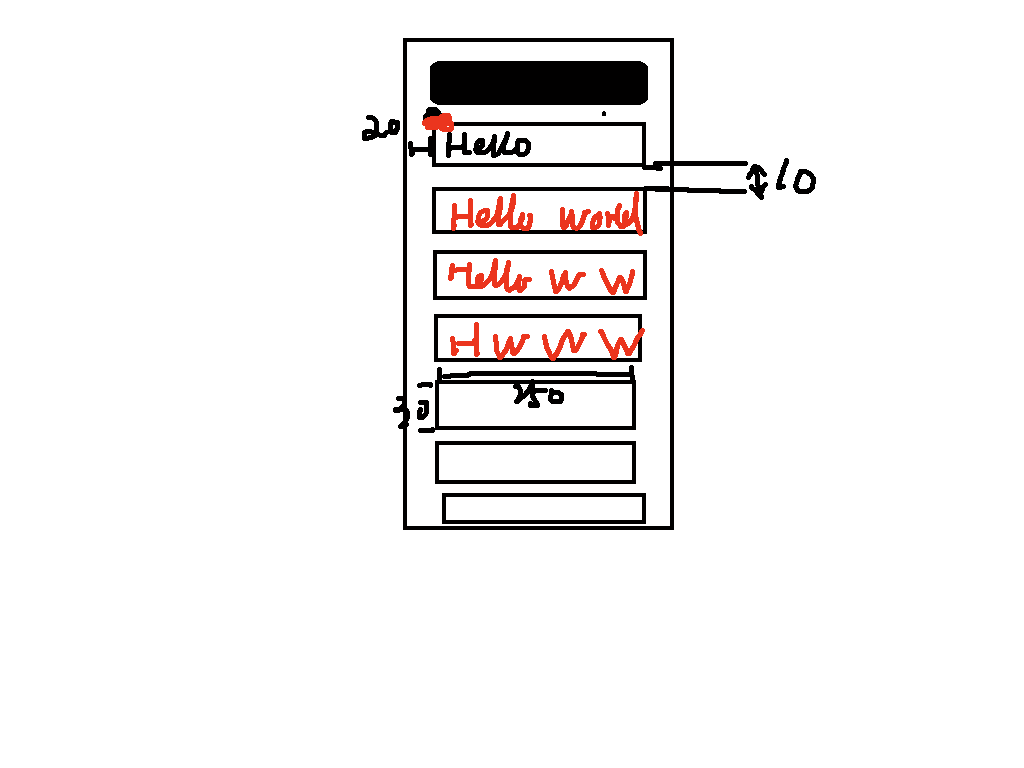 20
Hello
10
Hello World
Hello W W
H W W W
250
30